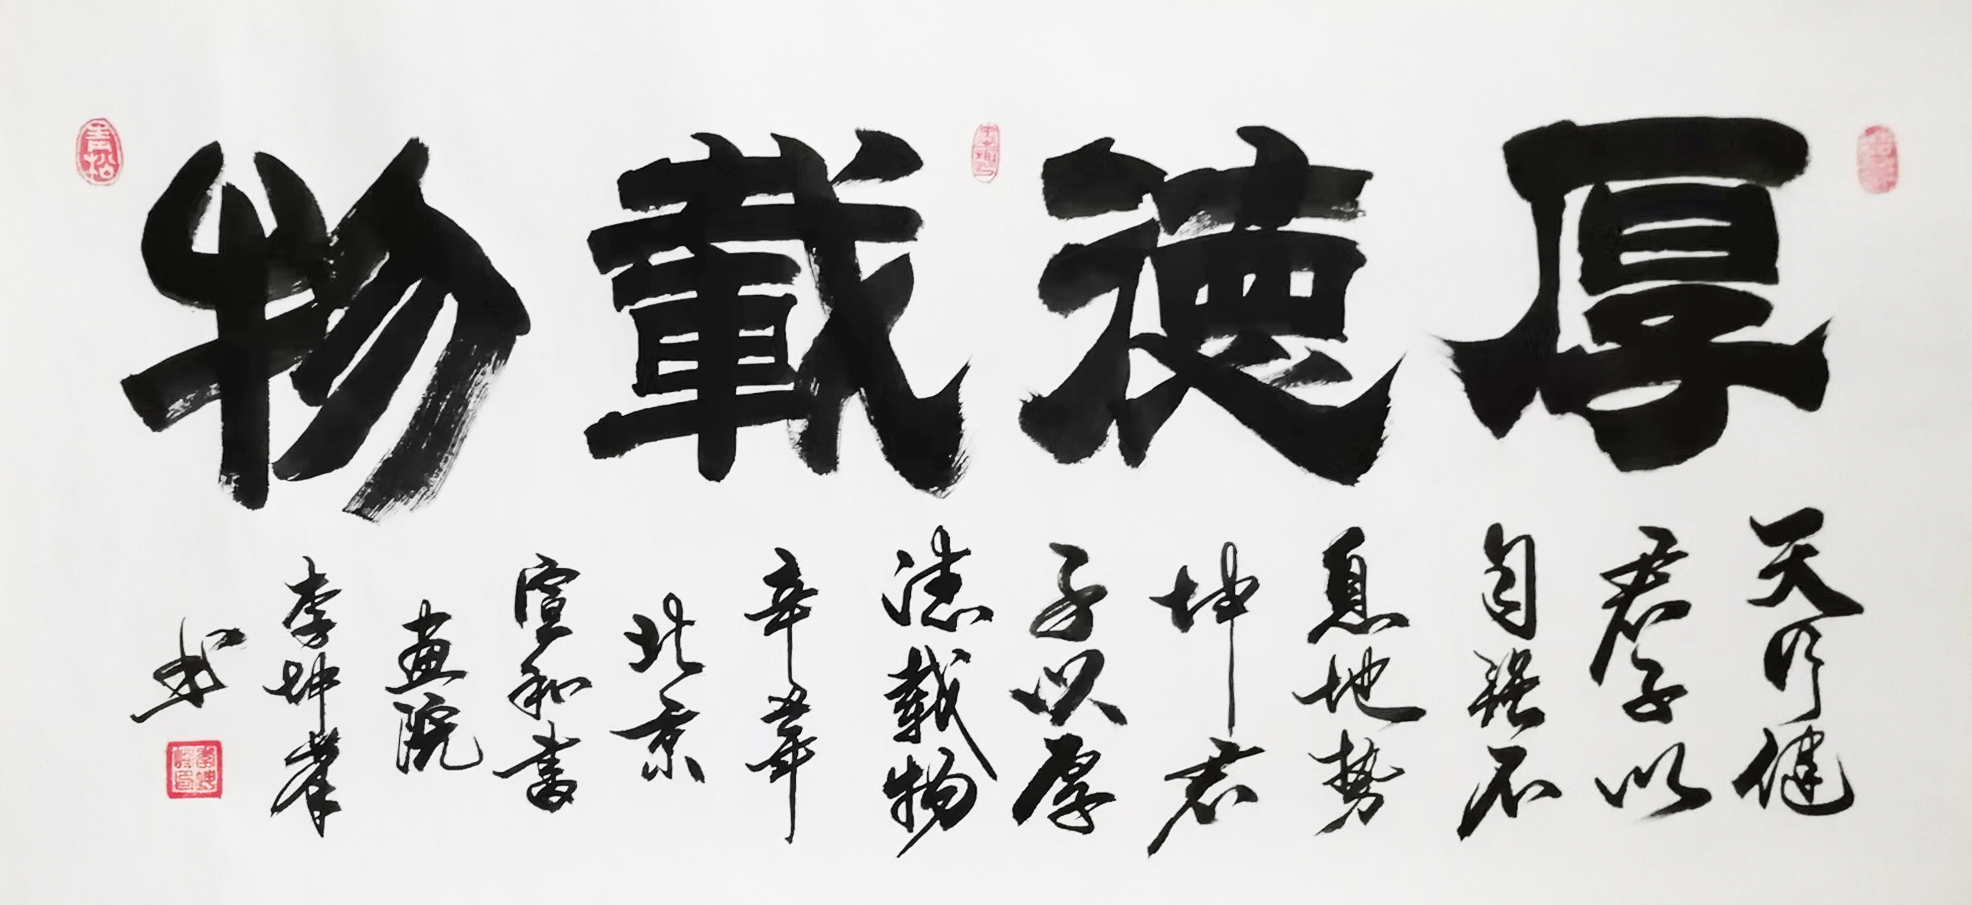 厚德載物
天行健
君子以
自强不
息地势
坤君
子以厚
德载物
辛丑年
北京
宣和書
画院
李坤
书
青松